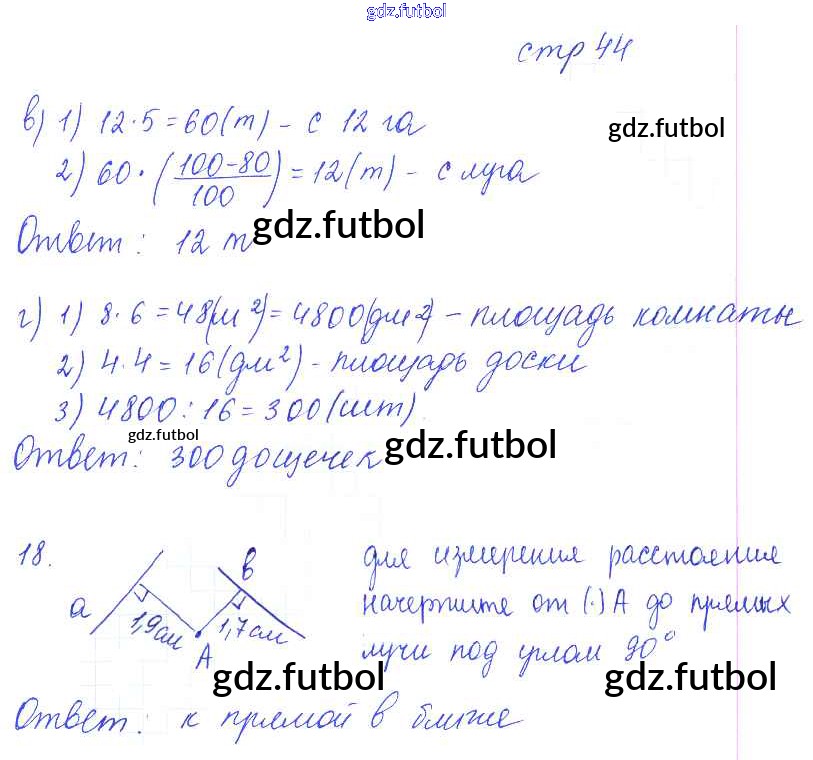 gdz.futbol
стр 44
в) 1) 12·5=60(т) – с 12 га
gdz.futbol
2) 60·(100-80/100)=12(т) – с луга
Ответ: 12 т
gdz.futbol
г) 1) 8·6=48(м²)=4800(дм²) – площадь комнаты
2) 4·4=16(дм²) – площадь доски
3) 4800:16=300(шт).
gdz.futbol
Ответ: 300 дощечек
gdz.futbol
18.
а
в
1,9см
1,7см
А
для измерения расстояния
начертите от (·) А до прямых
лучи под углом 90°
gdz.futbol
gdz.futbol
Ответ: к прямой в ближе